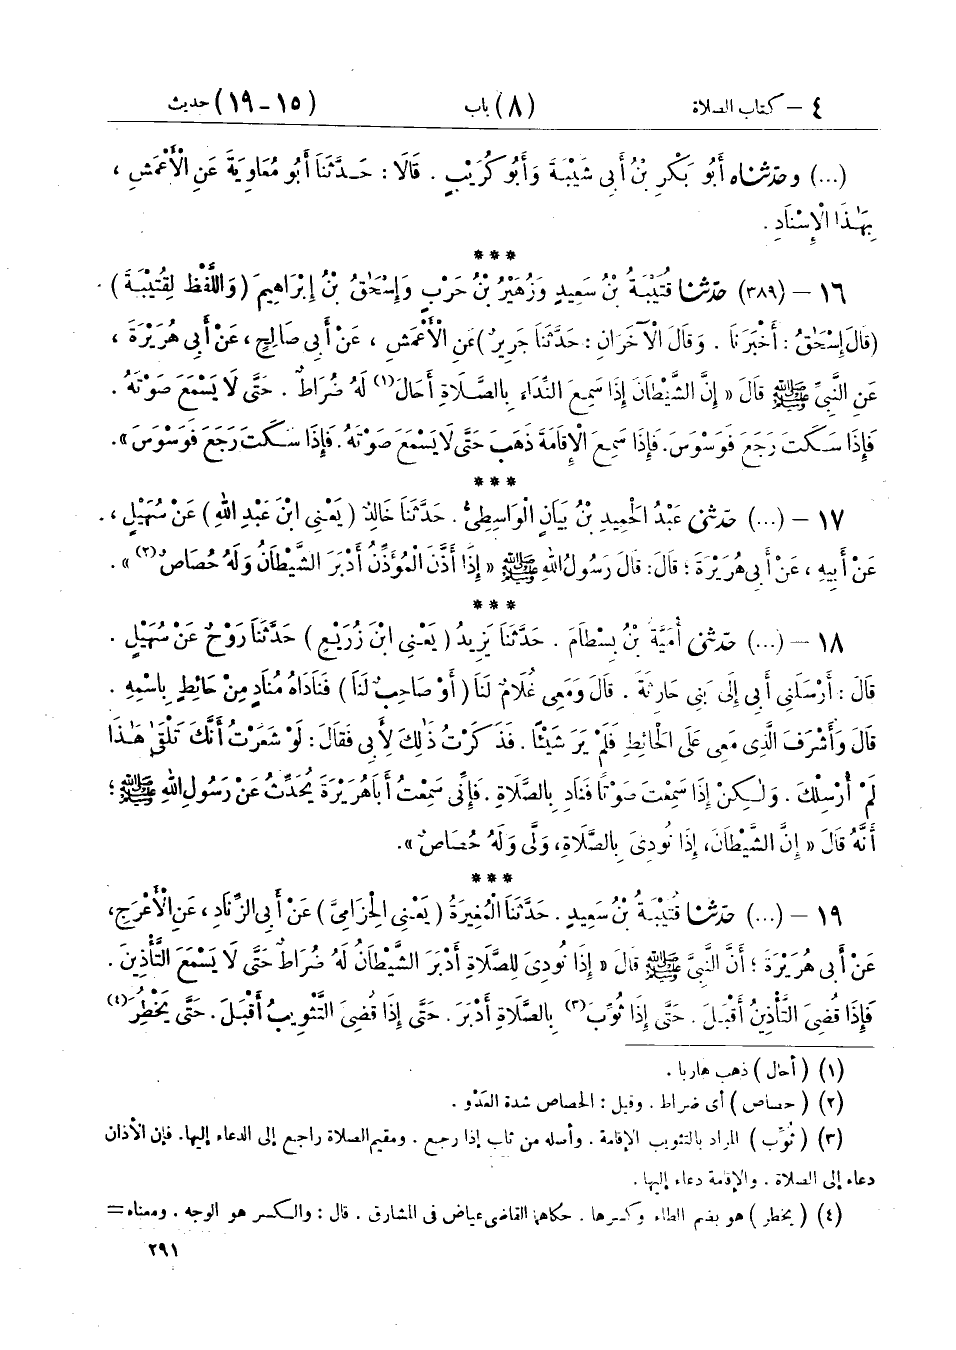 ٤ - كتاب الصلاة (٨) باب (١٥-١٩) حديث
(...) وحَدَّثَنَاه أَبُو بَكْرِ بْنُ أَبِي شَيْبَةَ وَأَبُو كُرَيْبٍ . قَالَا : حَدَّثَنَا أَبُو مُعَاوِيَةَ عَنِ الْأَعْمَشِ ،
بِهَٰذَا الْإِسْنَادِ .
***
١٦ - (٣٨٩) حَدَّثَنَا قُتَيْبَةُ بْنُ سَعِيدٍ وَزُهَيْرُ بْنُ حَرْبٍ وَإِسْحَٰقُ بْنُ إِبْرَاهِيمَ (وَاللَّفْظُ لِقُتَيْبَةَ) .
(قَالَ إِسْحَٰقُ : أَخْبَرَنَا . وَقَالَ الْآخَرَانِ : حَدَّثَنَا جَرِيرٌ) عَنِ الْأَعْمَشِ ، عَنْ أَبِي صَالِحٍ ، عَنْ أَبِي هُرَيْرَةَ ،
عَنِ النَّبِيِّ ﷺ قَالَ « إِنَّ الشَّيْطَانَ إِذَا سَمِعَ النِّدَاءَ بِالصَّلَاةِ أَحَالَ (١) لَهُ ضُرَاطٌ . حَتَّى لَا يَسْمَعَ صَوْتَهُ .
فَإِذَا سَكَتَ رَجَعَ فَوَسْوَسَ . فَإِذَا سَمِعَ الْإِقَامَةَ ذَهَبَ حَتَّى لَا يَسْمَعَ صَوْتَهُ . فَإِذَا سَكَتَ رَجَعَ فَوَسْوَسَ » .
***
١٧ - (...) حَدَّثَنِي عَبْدُ الْحَمِيدِ بْنُ بَيَانٍ الْوَاسِطِيُّ . حَدَّثَنَا خَالِدٌ (يَعْنِي ابْنَ عَبْدِ اللهِ) عَنْ سُهَيْلٍ ، .
عَنْ أَبِيهِ ، عَنْ أَبِي هُرَيْرَةَ ؛ قَالَ : قَالَ رَسُولُ اللهِ ﷺ « إِذَا أَذَّنَ الْمُؤَذِّنُ أَدْبَرَ الشَّيْطَانُ وَلَهُ حُصَاصٌ (٢) » .
***
١٨ - (...) حَدَّثَنِي أُمَيَّةُ بْنُ بِسْطَامَ . حَدَّثَنَا يَزِيدُ (يَعْنِي ابْنَ زُرَيْعٍ) حَدَّثَنَا رَوْحٌ عَنْ سُهَيْلٍ .
قَالَ : أَرْسَلَنِي أَبِي إِلَى بَنِي حَارِثَةَ . قَالَ وَمَعِي غُلَامٌ لَنَا (أَوْ صَاحِبٌ لَنَا) فَنَادَاهُ مُنَادٍ مِنْ حَائِطٍ بِاسْمِهِ .
قَالَ وَأَشْرَفَ الَّذِي مَعِي عَلَى الْحَائِطِ فَلَمْ يَرَ شَيْئًا . فَذَكَرْتُ ذَٰلِكَ لِأَبِي فَقَالَ : لَوْ شَعَرْتُ أَنَّكَ تَلْقَىٰ هَٰذَا
لَمْ أُرْسِلْكَ . وَلَٰكِنْ إِذَا سَمِعْتَ صَوْتًا فَنَادِ بِالصَّلَاةِ . فَإِنِّي سَمِعْتُ أَبَا هُرَيْرَةَ يُحَدِّثُ عَنْ رَسُولِ اللهِ ﷺ ؛
أَنَّهُ قَالَ « إِنَّ الشَّيْطَانَ ، إِذَا نُودِيَ بِالصَّلَاةِ ، وَلَّى وَلَهُ حُصَاصٌ » .
***
١٩ - (...) حَدَّثَنَا قُتَيْبَةُ بْنُ سَعِيدٍ . حَدَّثَنَا الْمُغِيرَةُ (يَعْنِي الْحِزَامِيَّ) عَنْ أَبِي الزِّنَادِ ، عَنِ الْأَعْرَجِ ،
عَنْ أَبِي هُرَيْرَةَ ؛ أَنَّ النَّبِيَّ ﷺ قَالَ « إِذَا نُودِيَ لِلصَّلَاةِ أَدْبَرَ الشَّيْطَانُ لَهُ ضُرَاطٌ حَتَّى لَا يَسْمَعَ التَّأْذِينَ .
فَإِذَا قُضِيَ التَّأْذِينُ أَقْبَلَ . حَتَّى إِذَا ثُوِّبَ (٣) بِالصَّلَاةِ أَدْبَرَ . حَتَّى إِذَا قُضِيَ التَّثْوِيبُ أَقْبَلَ . حَتَّى يَخْطُِرَ (٤)
(١) (أحال) ذهب هاربا .
(٢) (حصاص) أى ضراط . وقيل : الحصاص شدة العَدْو .
(٣) (ثُوِّب) المراد بالتثويب الإقامة . وأصله من ثاب إذا رجع . ومقيم الصلاة راجع إلى الدعاء إليها. فإن الأذان
دعاء إلى الصلاة . والإقامة دعاء إليها .
(٤) (يخطر) هو بضم الطاء وكسرها . حكاهما القاضى عياض فى المشارق . قال : والكسر هو الوجه . ومعناه =
٢٩١